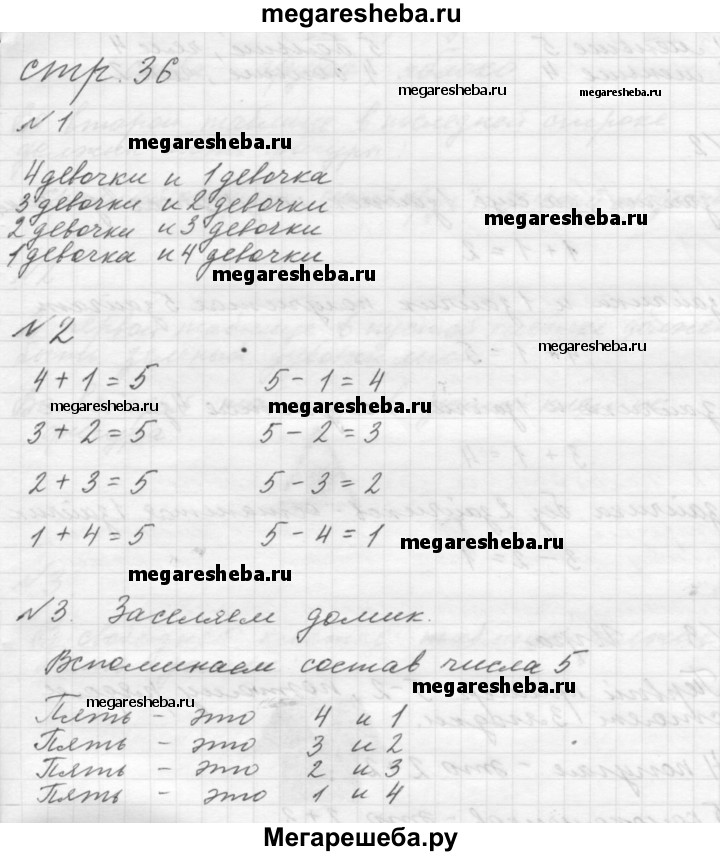 megaresheba.ru
стр. 36
megaresheba.ru megaresheba.ru
№ 1
megaresheba.ru
4 девочки и 1 девочка
3 девочки и 2 девочки
megaresheba.ru
2 девочки и 3 девочки
1 девочка и 4 девочки
megaresheba.ru
№ 2
megaresheba.ru
4 + 1 = 5 5 - 1 = 4
megaresheba.ru megaresheba.ru
3 + 2 = 5 5 - 2 = 3
2 + 3 = 5 5 - 3 = 2
1 + 4 = 5 5 - 4 = 1
megaresheba.ru
megaresheba.ru
№ 3. Заселяем домик.
Вспоминаем состав числа 5
megaresheba.ru
megaresheba.ru
Пять - это 4 и 1
Пять - это 3 и 2
Пять - это 2 и 3
Пять - это 1 и 4
Мегарешеба.ру